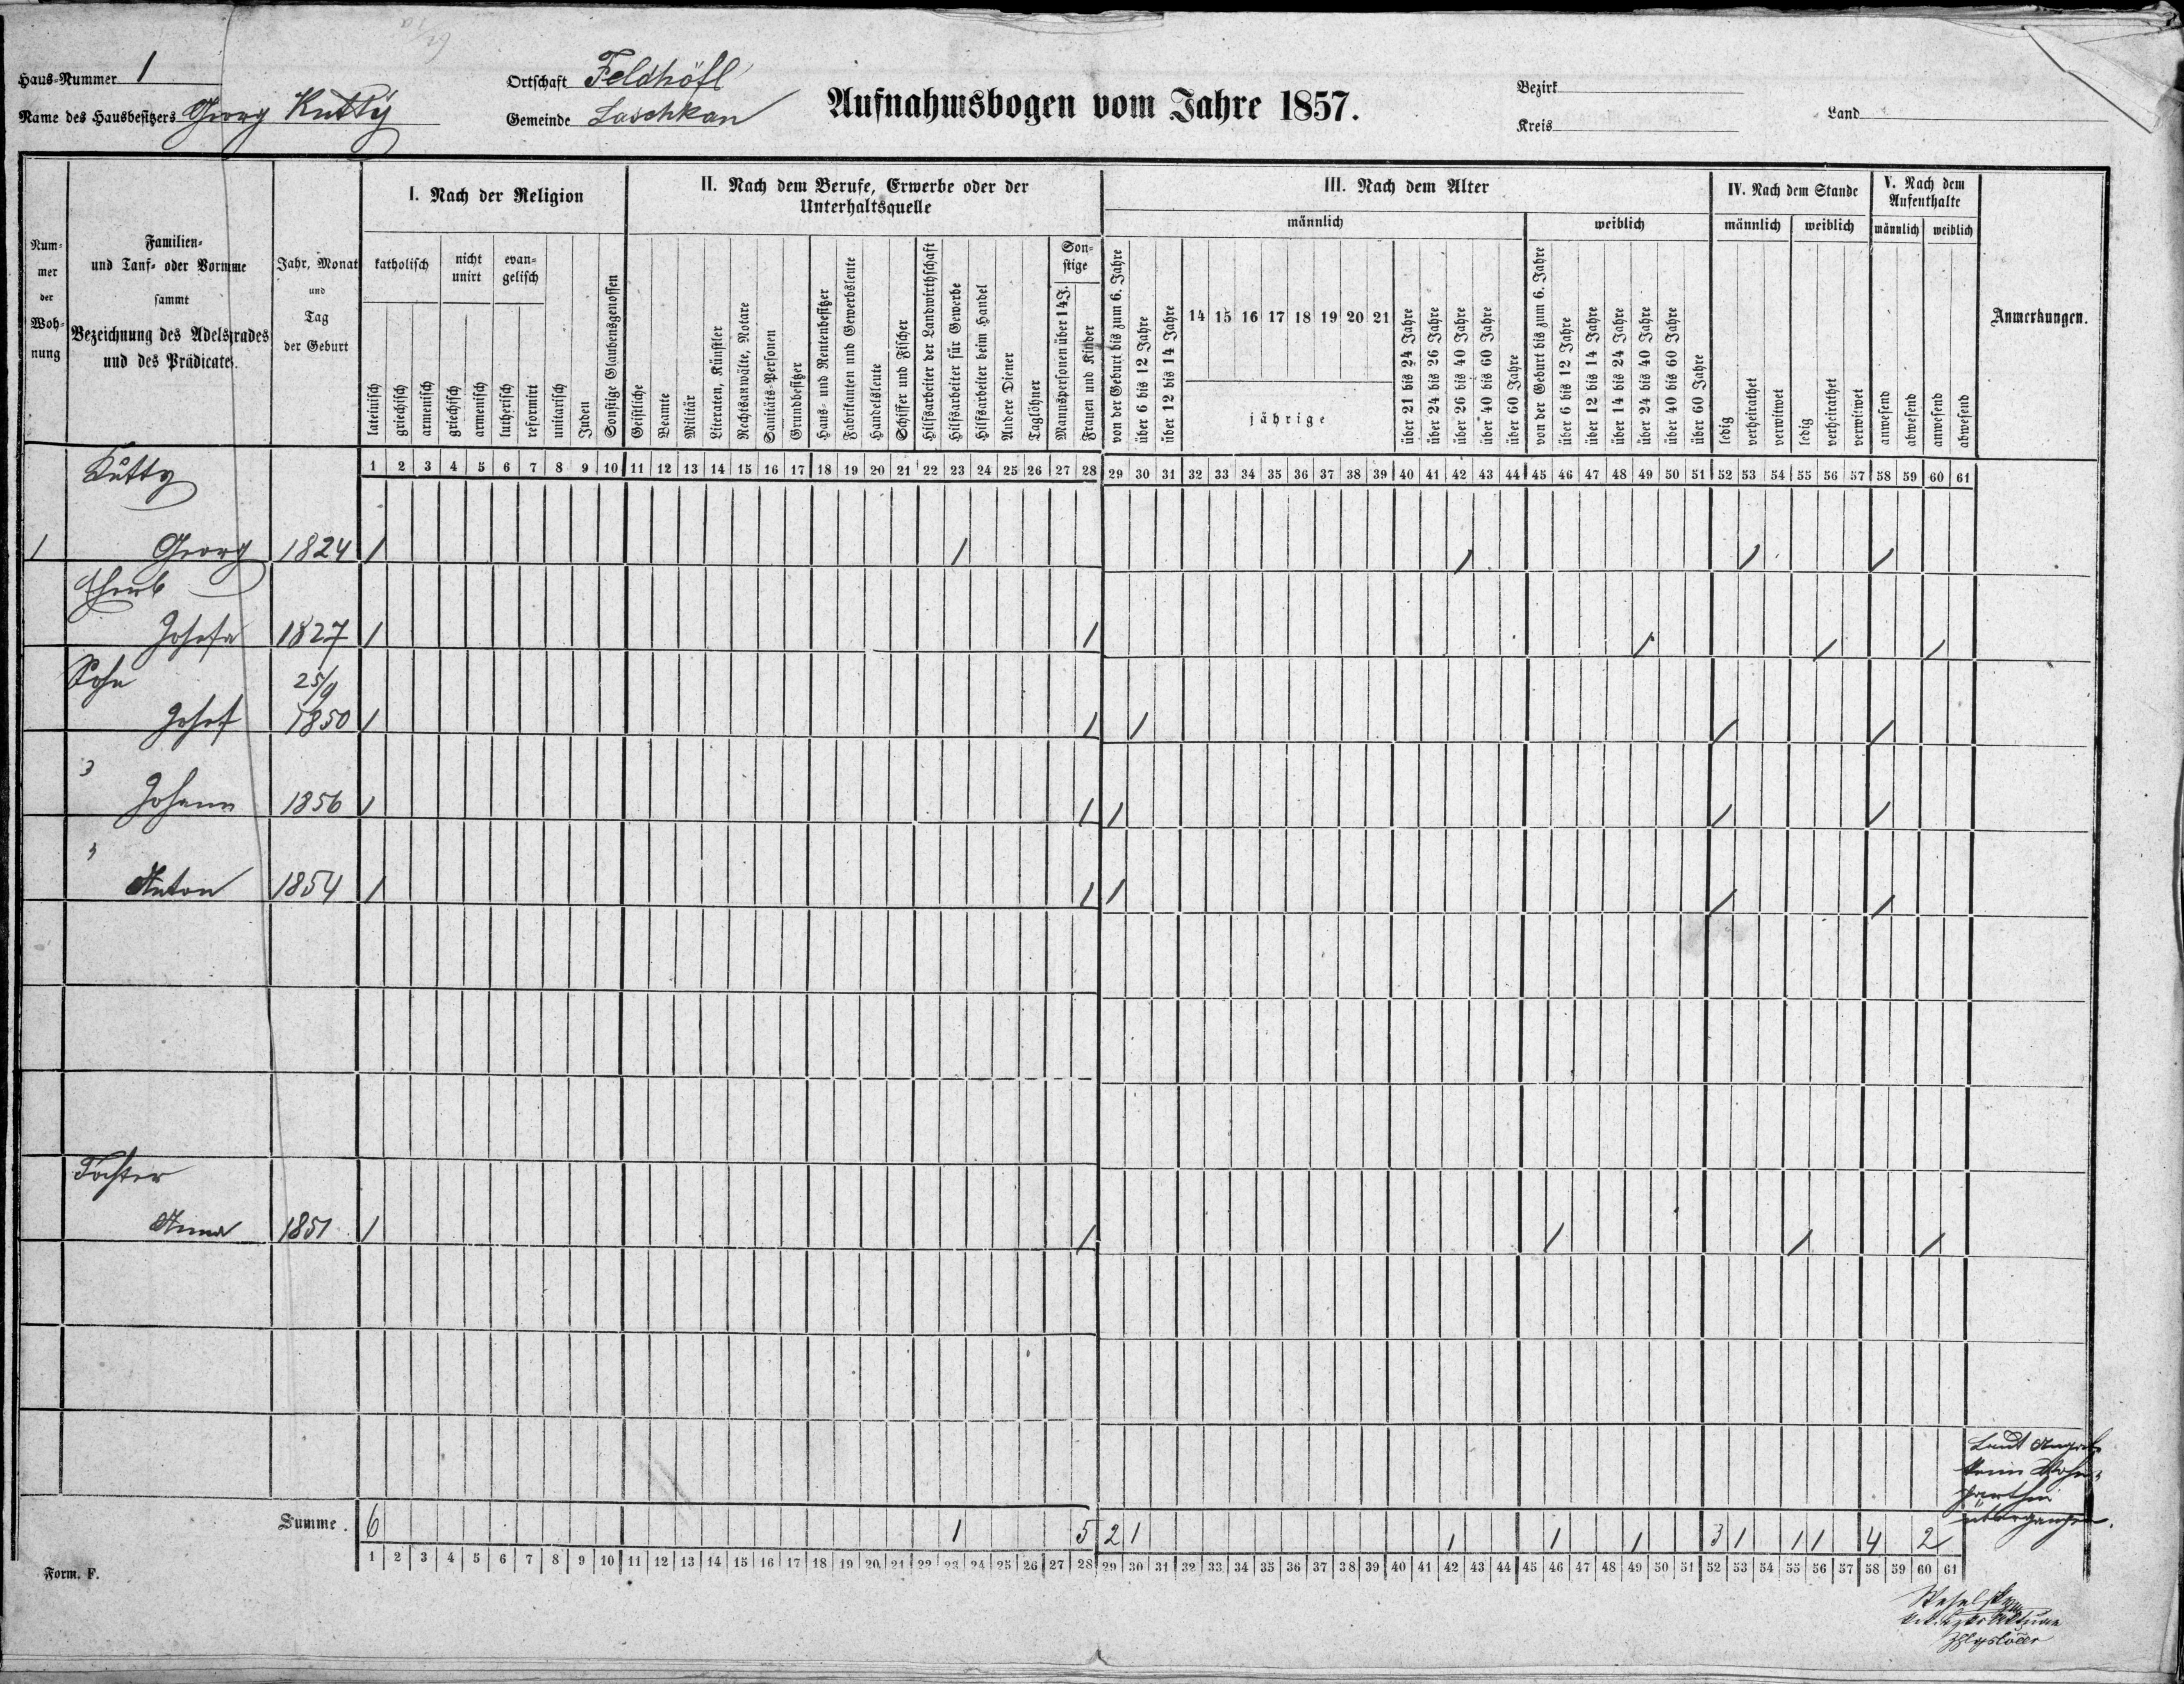 Haus-Nummer 1
Name des Hausbesitzers Georg Kutty
Ortschaft Feldhöfl
Gemeinde Laschkan
Aufnahmsbogen vom Jahre 1857.
Bezirk
Kreis
Land
Num-
mer
der
Woh-
nung
Familien-
und Tauf- oder Vorname
sammt
Bezeichnung des Adelsgrades
und des Prädicates.
Jahr, Monat
und
Tag
der Geburt
I. Nach der Religion
katholisch
nicht
unirt
evan-
gelisch
lateinisch
griechisch
armenisch
griechisch
armenisch
lutherisch
reformirt
unitarisch
Juden
Sonstige Glaubensgenossen
II. Nach dem Berufe, Erwerbe oder der
Unterhaltsquelle
Geistliche
Beamte
Militär
Literaten, Künstler
Rechtsanwälte, Notare
Sanitäts-Personen
Grundbesitzer
Haus- und Rentenbesitzer
Fabrikanten und Gewerbsleute
Handelsleute
Schiffer und Fischer
Hilfsarbeiter der Landwirthschaft
Hilfsarbeiter für Gewerbe
Hilfsarbeiter beim Handel
Andere Diener
Taglöhner
Son-
stige
Mannspersonen über 14 J.
Frauen und Kinder
III. Nach dem Alter
männlich
von der Geburt bis zum 6. Jahre
über 6 bis 12 Jahre
über 12 bis 14 Jahre
14 15 16 17 18 19 20 21
jährige
über 21 bis 24 Jahre
über 24 bis 26 Jahre
über 26 bis 40 Jahre
über 40 bis 60 Jahre
über 60 Jahre
weiblich
von der Geburt bis zum 6. Jahre
über 6 bis 12 Jahre
über 12 bis 14 Jahre
über 14 bis 24 Jahre
über 24 bis 40 Jahre
über 40 bis 60 Jahre
über 60 Jahre
IV. Nach dem Stande
männlich weiblich
ledig
verheirathet
verwitwet
ledig
verheirathet
verwitwet
V. Nach dem
Aufenthalte
männlich weiblich
anwesend
abwesend
anwesend
abwesend
Anmerkungen.
1 2 3 4 5 6 7 8 9 10 11 12 13 14 15 16 17 18 19 20 21 22 23 24 25 26 27 28 29 30 31 32 33 34 35 36 37 38 39 40 41 42 43 44 45 46 47 48 49 50 51 52 53 54 55 56 57 58 59 60 61
Kutty
1 Georg 1824 1 1 1 1 1
Eheweib
Josefa 1827 1 1 1 1 1
Sohn 25/9
Josef 1850 1 1 1 1 1
Johann 1856 1 1 1 1 1
Anton 1854 1 1 1 1 1
Tochter
Anna 1851 1 1 1 1 1
Laut Angabe
keine Wohn-
parthei
übergangen.
Summe. 6 1 5 2 1 1 1 1 3 1 1 1 4 2
1 2 3 4 5 6 7 8 9 10 11 12 13 14 15 16 17 18 19 20 21 22 23 24 25 26 27 28 29 30 31 32 33 34 35 36 37 38 39 40 41 42 43 44 45 46 47 48 49 50 51 52 53 54 55 56 57 58 59 60 61
Form. F.